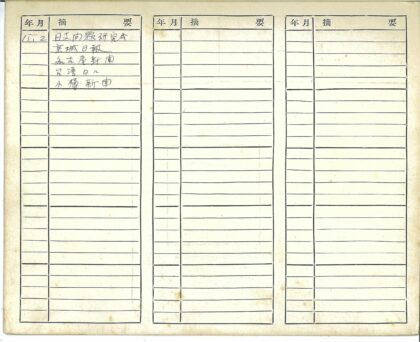 年月 摘要 年月 摘要 年月 摘要
15.2 日支問題研究会
京城日報
名古屋新聞
台湾日々
小樽新聞